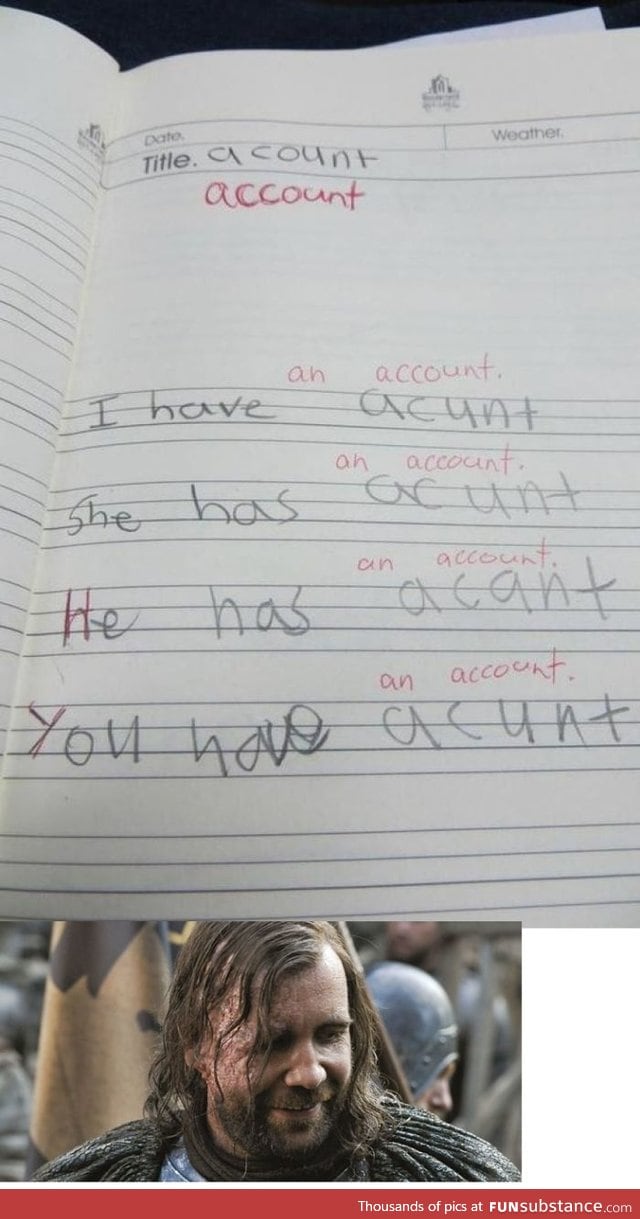 Date.
Weather.
Title. acount
account
an account.
I have acunt
an account.
She has acunt
an account.
He has acant
an account.
You have acunt
Thousands of pics at FUNsubstance.com